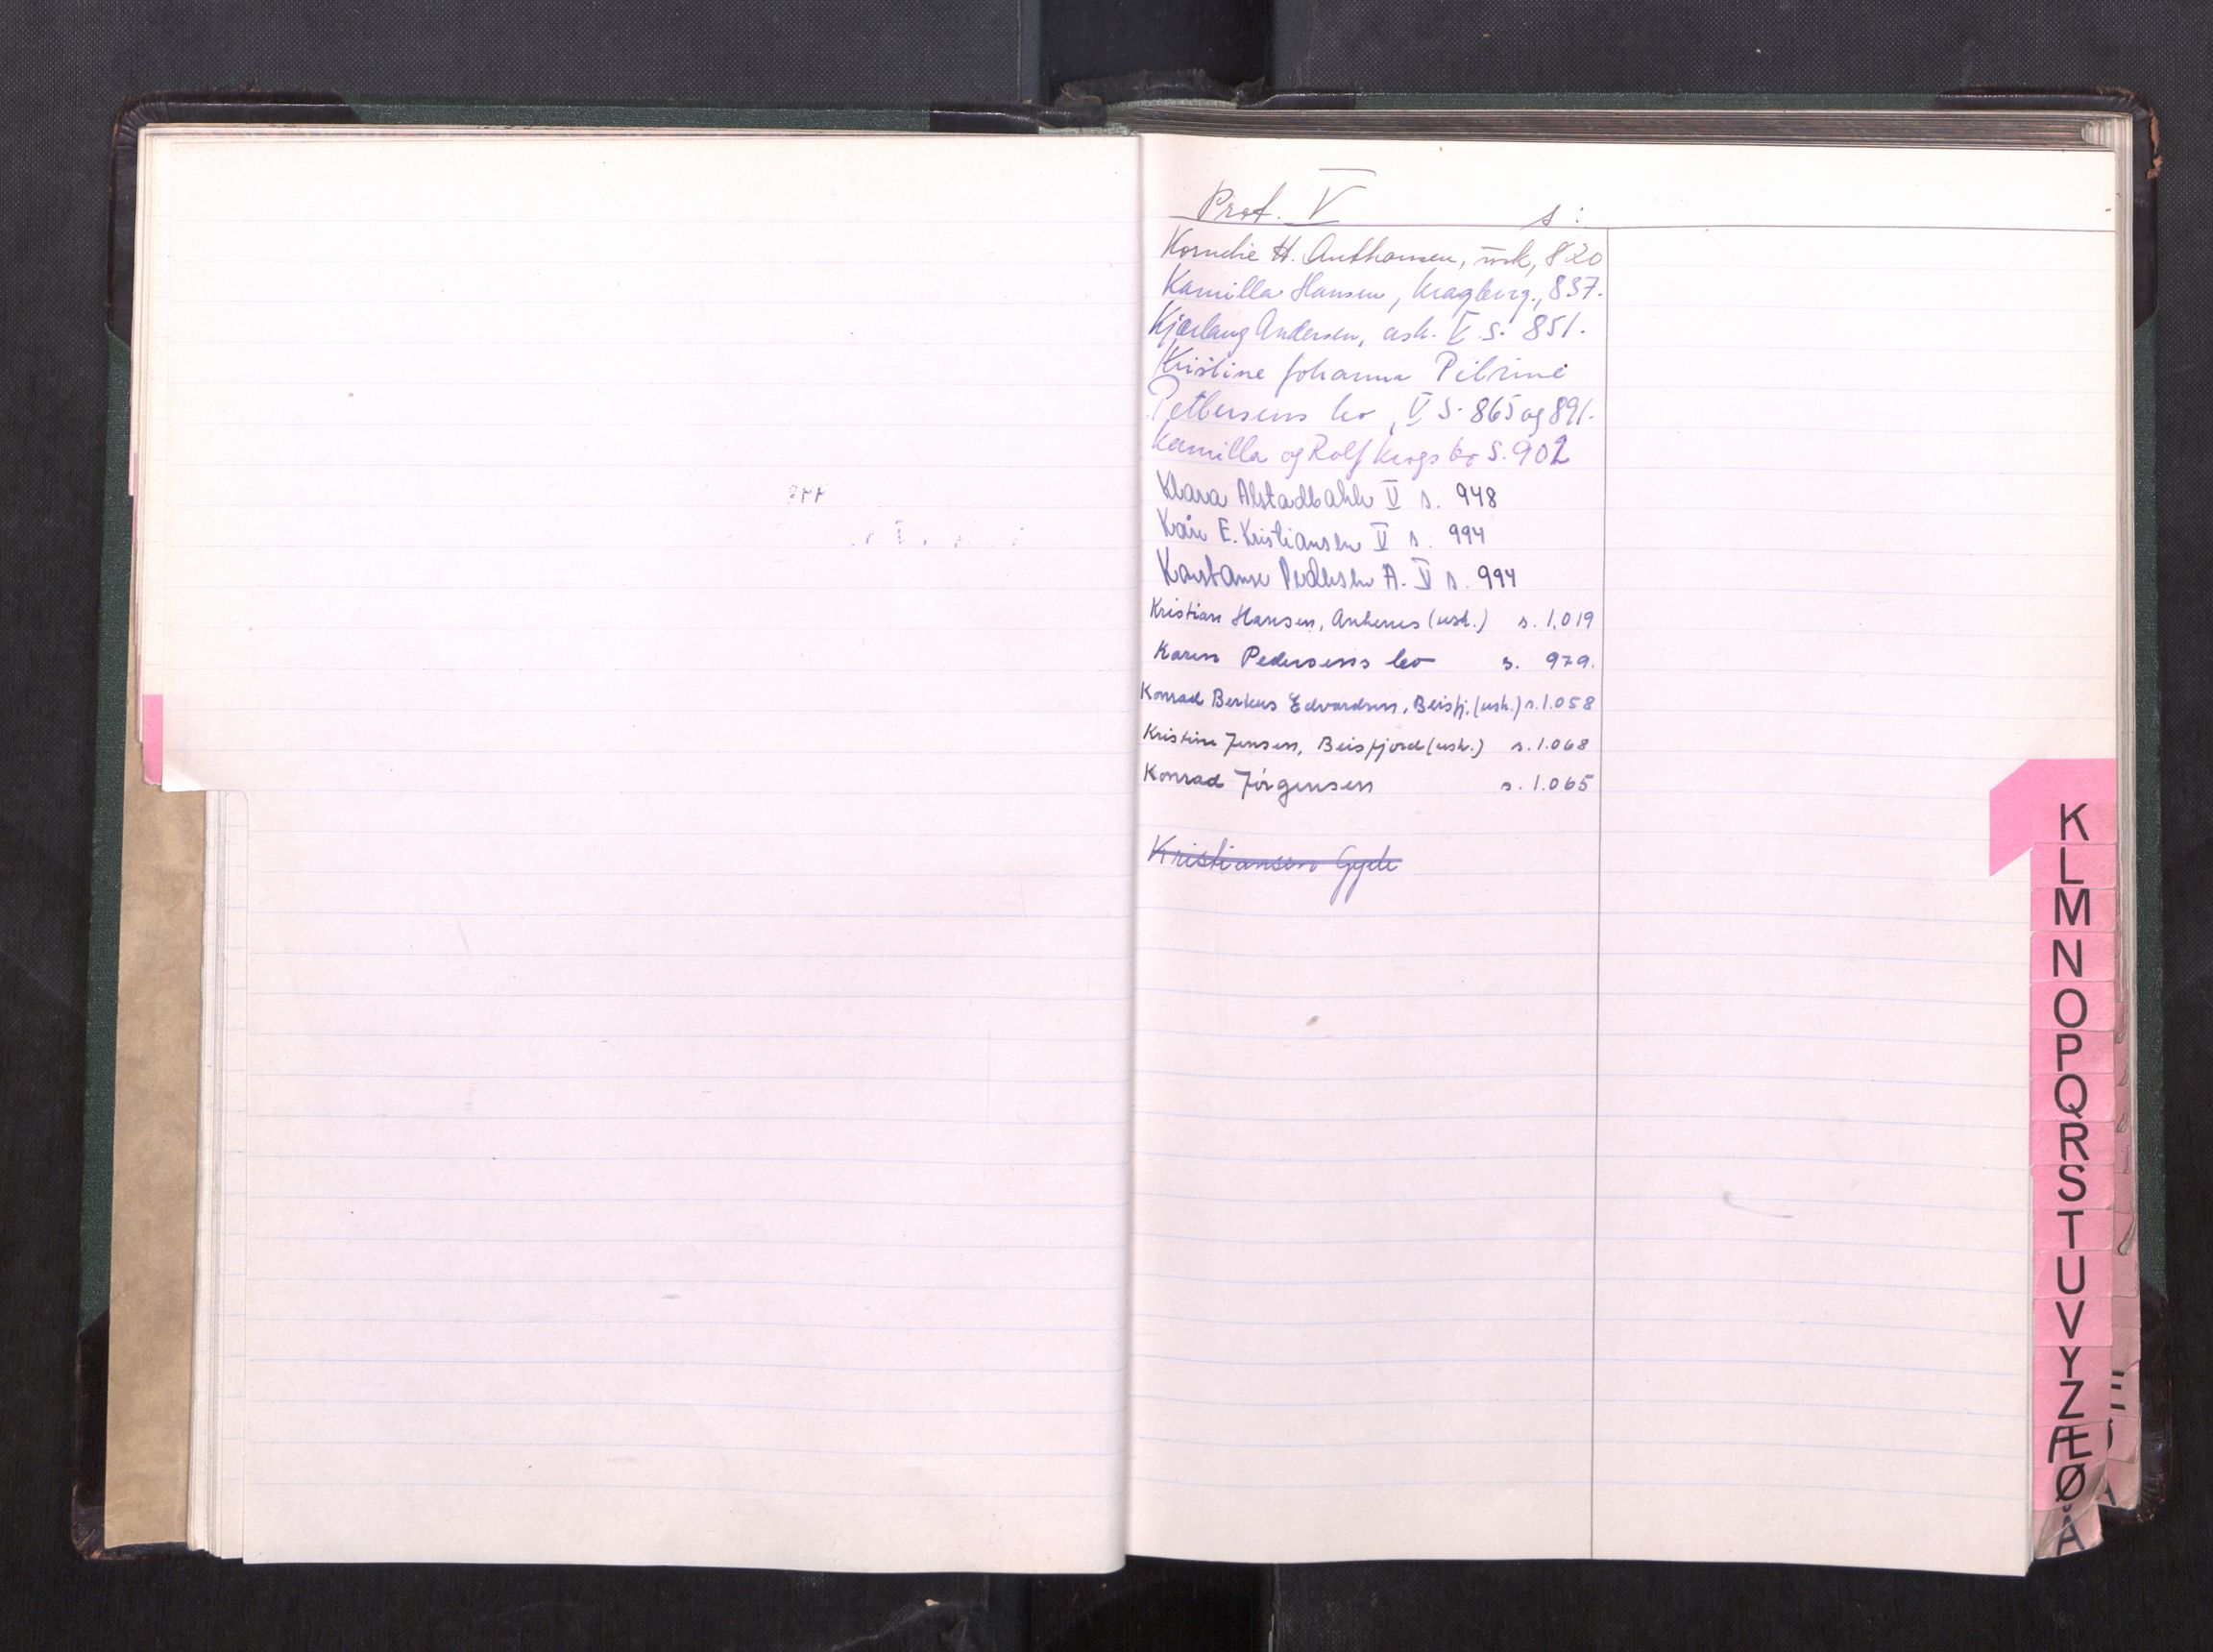 Prot. V s:
Kornelie H. Anthonsen, usk, 820
Kamilla Hansen, Kragberg., 837.
Kjærlaug Andersen, usk. V S. 851.
Kristine Johanna Pilrine
Pettersens bo, V S. 865 og 891.
Kamilla og Rolf Krogs bo S. 902
Klara Alstadbakk V s. 948
Kåre E. Kristiansen V s. 994
Konstanse Pedersen A. V s. 994
Kristian Hansen, Ankenes (usk.) s. 1.019
Karen Pedersens bo s. 979.
Konrad Berteus Edvardsen, Beisfj. (usk.) s. 1.058
Kristine Jensen, Beisfjord (usk.) s. 1.068
Konrad Jørgensen s. 1.065
Kristiansen
K
L
M
N
O
P
Q
R
S
T
U
V
Y
Z
Æ
Ø
Å